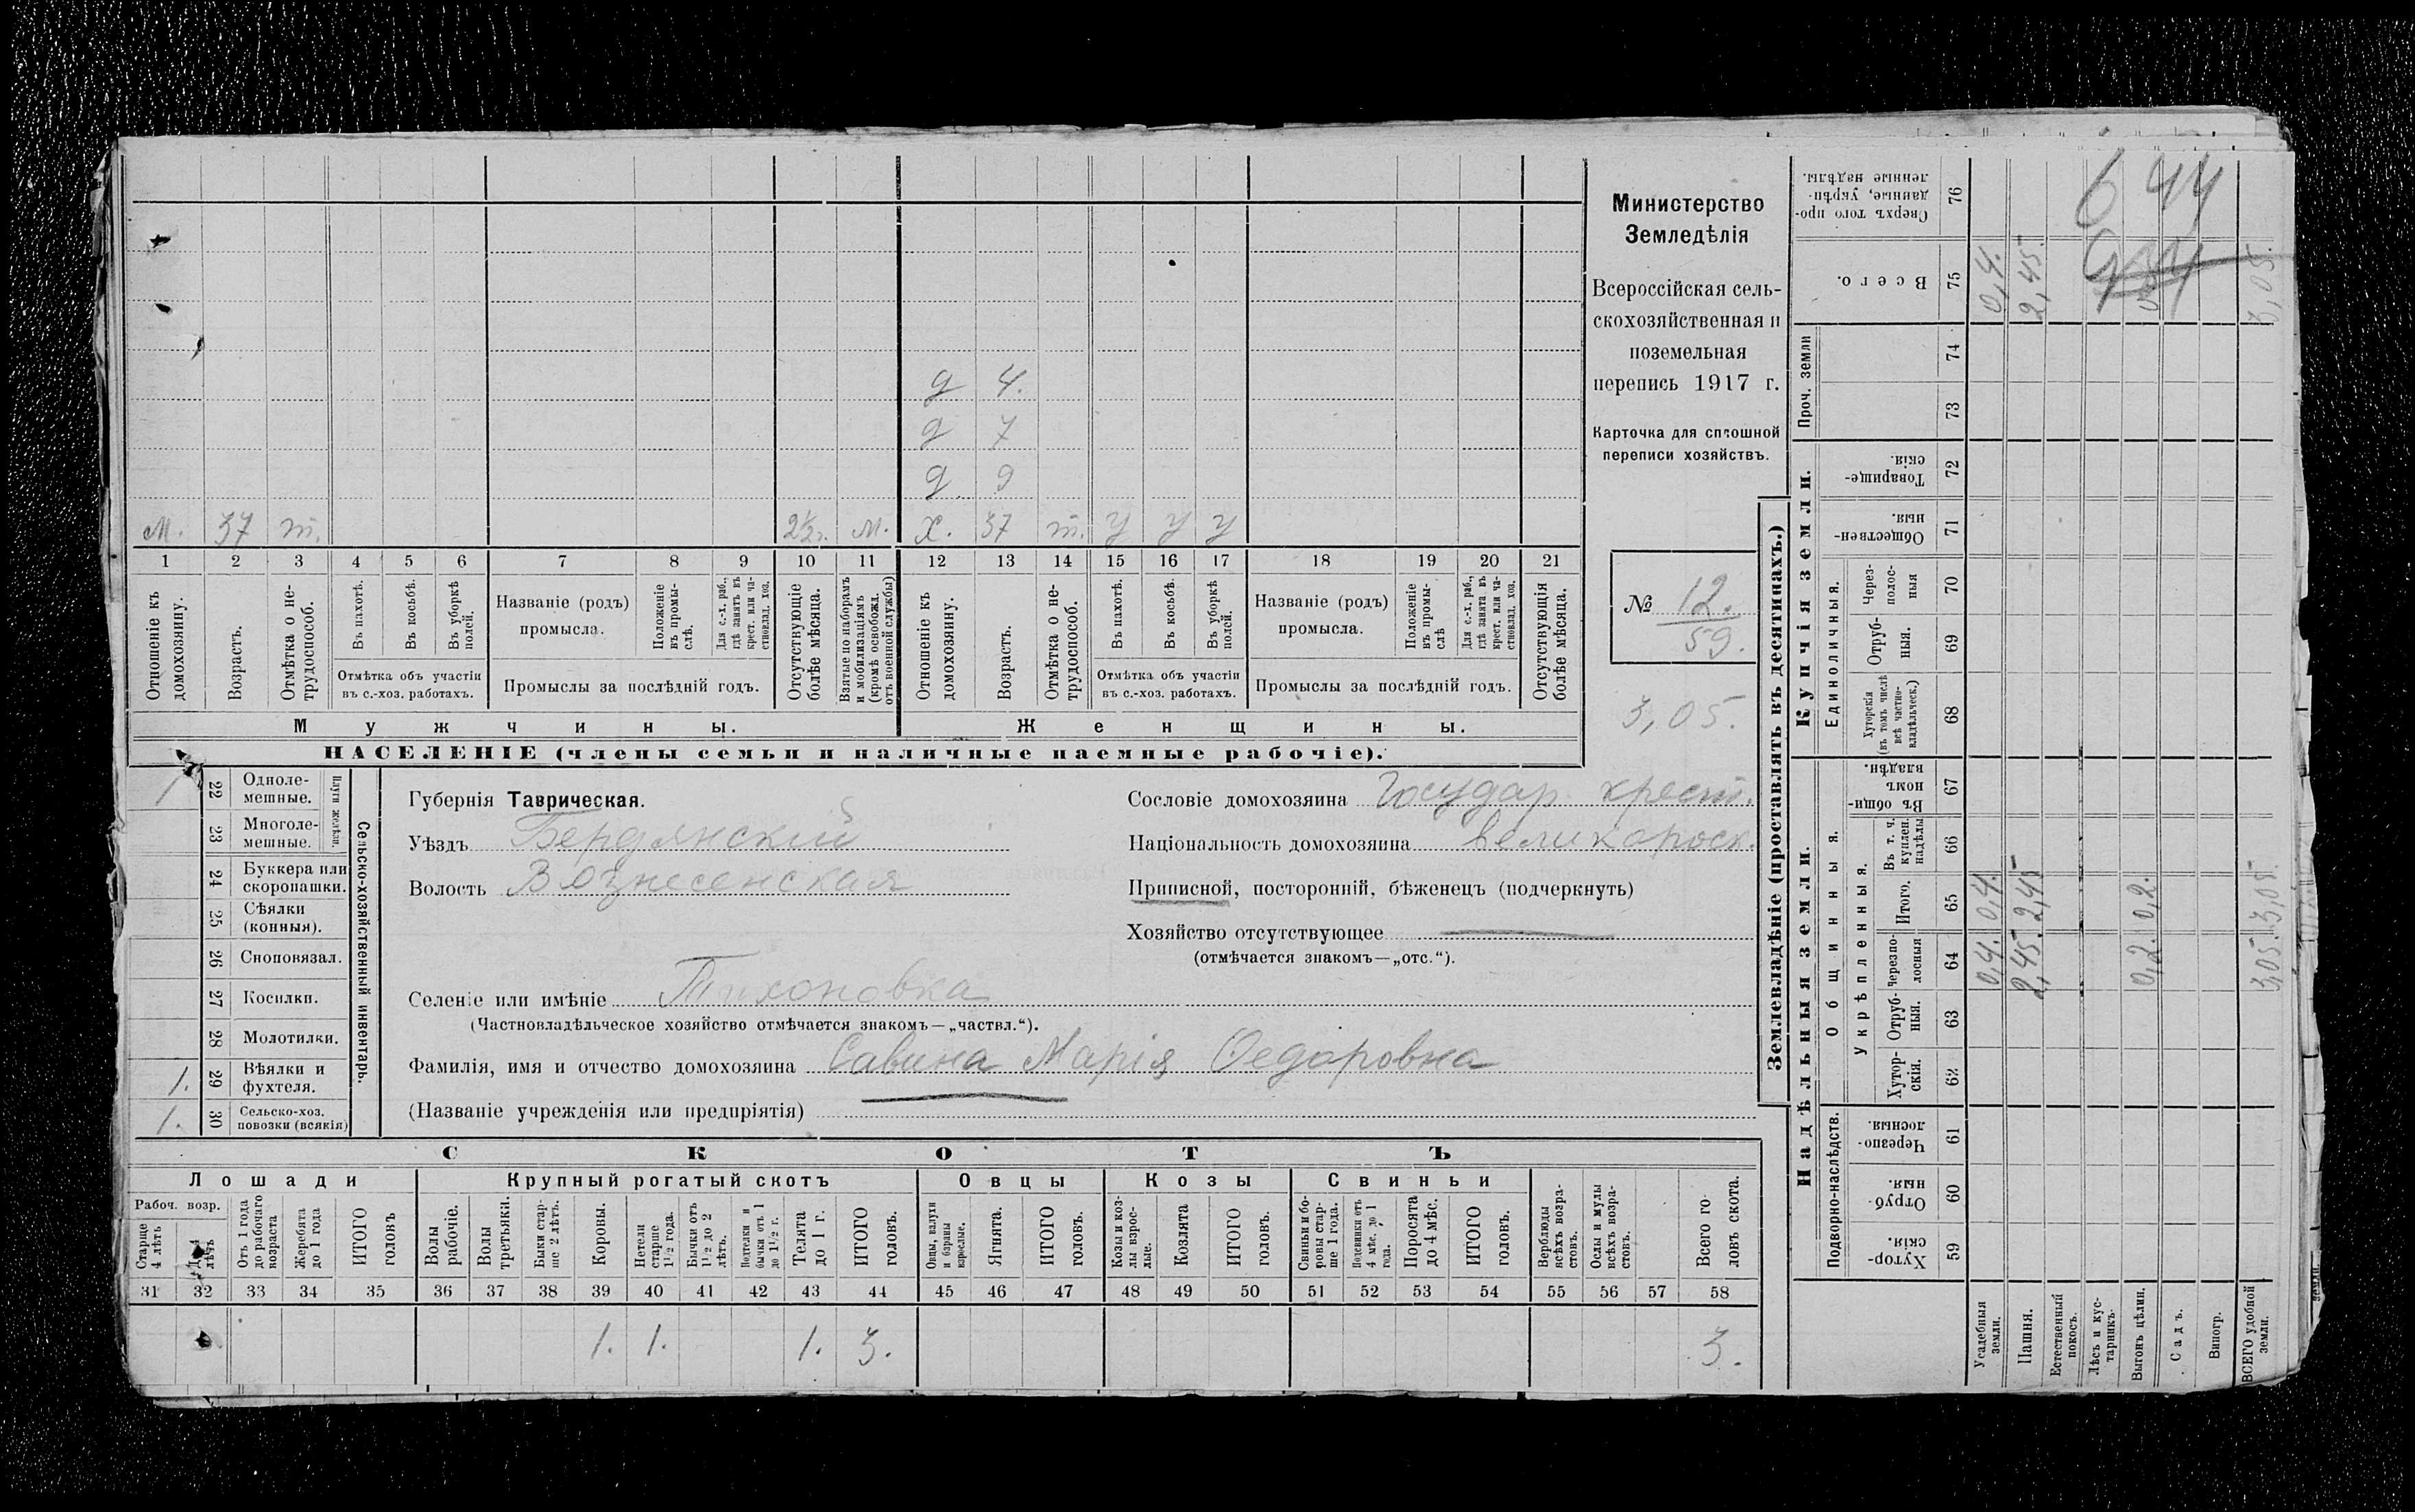 Министерство
Земледѣлія
Всероссійская сель-
скохозяйственная и
поземельная
перепись 1917 г.
Карточка для сплошной
переписи хозяйствъ.
№ 12.
59.
3,05.
д 4.
д 7
д 9
м. 37 т. 2½ м. х. 37 т. у у у
1 2 3 4 5 6 7 8 9 10 11 12 13 14 15 16 17 18 19 20 21
Отношеніе къ домохозяину.
Возрастъ.
Отмѣтка о не-трудоспособ.
Въ пахотѣ.
Въ косьбѣ.
Въ уборкѣ полей.
Отмѣтка объ участіи
въ с.-хоз. работахъ.
Названіе (родъ)
промысла.
Положеніе въ промы-слѣ.
Для с.-х. раб., гдѣ занятъ въ крест. или ча-стновлад. хоз.
Промыслы за послѣдній годъ.
Отсутствующіе болѣе мѣсяца.
Взятые по наборамъ и мобилизаціямъ (кромѣ освобожд. отъ военной службы)
Отношеніе къ домохозяину.
Возрастъ.
Отмѣтка о не-трудоспособ.
Въ пахотѣ.
Въ косьбѣ.
Въ уборкѣ полей.
Отмѣтка объ участіи
въ с.-хоз. работахъ.
Названіе (родъ)
промысла.
Положеніе въ промы-слѣ
Для с.-х. раб., гдѣ занята въ крест. или ча-стновлад. хоз.
Промыслы за послѣдній годъ.
Отсутствующія болѣе мѣсяца.
Мужчины. Женщины.
НАСЕЛЕНІЕ (члены семьи и наличные наемные рабочіе).
Сельско-хозяйственный инвентарь.
Плуги желѣзн.
1 22 Одноле-мешные.
23 Многоле-мешные.
24 Буккера или скоропашки.
25 Сѣялки (конныя).
26 Сноповязал.
27 Косилки.
28 Молотилки.
1. 29 Вѣялки и фухтеля.
1. 30 Сельско-хоз. повозки (всякія)
Губернія Таврическая.
Уѣздъ Бердянскій
Волость Вознесенская
Сословіе домохозяина Государ. крест.
Національность домохозяина великоросс.
Приписной, посторонній, бѣженецъ (подчеркнуть)
Хозяйство отсутствующее
(отмѣчается знакомъ—„отс.“).
Селеніе или имѣніе Тихоновка
(Частновладѣльческое хозяйство отмѣчается знакомъ—„частвл.“).
Фамилія, имя и отчество домохозяина Савина Марія Ѳедоровна
(Названіе учрежденія или предпріятія)
СКОТЪ
Лошади Крупный рогатый скотъ Овцы Козы Свиньи
Рабоч. возр.
Старше 4 лѣтъ
До 4 лѣтъ
Отъ 1 года до рабочаго возраста
Жеребята до 1 года
ИТОГО головъ
Волы рабочіе.
Волы третьяки.
Быки стар-ше 2 лѣтъ.
Коровы.
Нетели старше 1½ года.
Бычки отъ 1½ до 2 лѣтъ.
Подтелки и бычки отъ 1 до 1½ г.
Телята до 1 г.
ИТОГО головъ.
Овцы, валухи и бараны взрослые.
Ягнята.
ИТОГО головъ.
Козы и коз-лы взрос-лые.
Козлята
ИТОГО головъ.
Свиньи и бо-ровы стар-ше 1 года.
Подсвинки отъ 4 мѣс. до 1 года.
Поросята до 4 мѣс.
ИТОГО головъ.
Верблюды всѣхъ возра-стовъ.
Ослы и мулы всѣхъ возра-стовъ.
Всего го-ловъ скота.
31 32 33 34 35 36 37 38 39 40 41 42 43 44 45 46 47 48 49 50 51 52 53 54 55 56 57 58
1. 1. 1. 3. 3.
Землевладѣніе (проставлять въ десятинахъ.)
Надѣльныя земли.
Купчія земли.
Проч. земли
Подворно-наслѣдств.
Общинныя.
Укрѣпленныя.
Единоличныя.
Хутор-скія. 59
Отруб-ныя. 60
Черезпо-лосныя. 61
Хутор-скія. 62
Отруб-ныя. 63
Черезпо-лосныя 64
Итого. 65
Въ т. ч. куплен. надѣлы 66
Въ общи-номъ владѣн. 67
Хуторскія (въ томъ числѣ всѣ частно-владѣльческ.) 68
Отруб-ныя. 69
Через-полос-ныя 70
Обществен-ныя. 71
Товарище-скія. 72
73
74
Всего. 75
Сверхъ того про-данные, укрѣп-ленные надѣлы. 76
Усадебныя земли. 0,4. 0,4. 0,4.
Пашня. 2,45. 2,45 2,45.
Естественный покосъ.
Лѣсъ и кус-тарникъ.
Выгонъ цѣлин. 0,2. 0,2.
Садъ.
Виногр.
ВСЕГО удобной земли. 3,05. 3,05. 3,05.
644